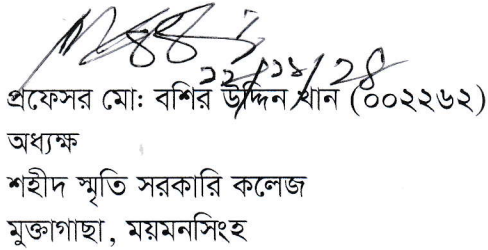 প্রফেসর মো: বশির উদ্দিন খান (০০২২৬২)
অধ্যক্ষ
শহীদ স্মৃতি সরকারি কলেজ
মুক্তাগাছা, ময়মনসিংহ